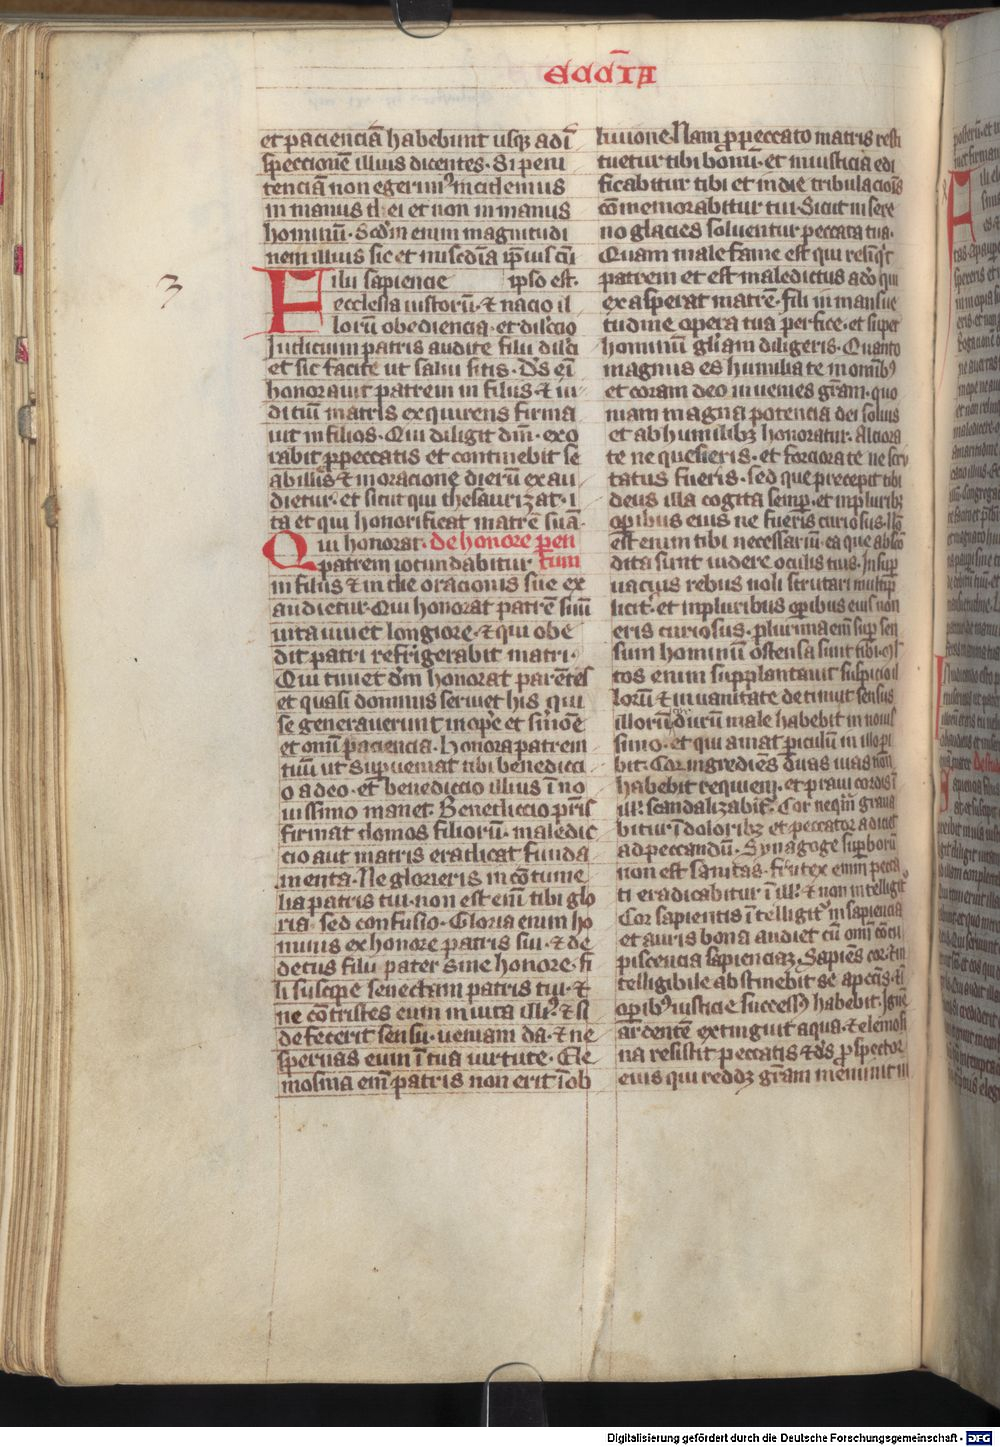 eccc̄ia
et paciencia̅ habebunt usq; ad i̅
speccione̅ illius dicentes. Si peni
tencia̅ non egerim᷒ incidemus
in manus dei et non in manus
hominu̅. Scd̅m enim magnitudi
nem illius sic et mis̅cdia̅ ip̅ius cu̅
Filii sapiencie ipso est.
ecclesia iustoru̅. ⁊ nacio il
loru̅ obediencia. et dilccio
Iudicium patris audite filii dilc̅i
et sic facite ut salui sitis. D̅s e̅i
honorauit patrem in filiis ⁊ iu
diciu̅ matris exquirens firma
uit in filios. Qui diligit dm̅. exo
rabit p̱ peccatis et continebit se
ab illis ⁊ in oracione dieru̅ exau
dietur. et sicut qui thesaurizat. i
ta et qui honorificat matre̅ sua̅.
Qui honorat. de honore paren
patrem iocundabitur tum
in filiis ⁊ in die oracionis sue ex
audietur. Qui honorat patre̅ suu̅
uita uiuet longiore. ⁊ qui obe
dit patri refrigerabit matri.
Qui timet dm̅ honorat parentes
et quasi dominis seruiet his qui
se generauerunt in op̱e et s̅mo̅e
et omni paciencia. Honora patrem
tuu̅ ut sup̱ueniat tibi benedicci
o a deo. et benediccio illius i̅ no
uissimo manet. Benediccio pr̅is
firmat domos filioru̅. maledic
cio aut matris eradicat funda
menta. Ne glorieris in co̅tume
lia patris tui. non est eni̅ tibi glo
ria sed confusio. Gloria enim ho
minis ex honore patris sui. ⁊ de
decus filii pater sine honore. fi
li suscipe senectam patris tui. ⁊
ne co̅tristes eum in uita illi᷒. ⁊ si
defecerit sensu. ueniam da. ⁊ ne
spernas eum i̅ tua uirtute. Ele
mosina em̅ patris non erit i̅ ob
liuione. Nam p̱ peccato matris resti
tuetur tibi bonu̅. et in iusticia edi
ficabitur tibi et in die tribulacio̅is
co̅memorabitur tui. Sicut in sere
no glacies soluentur peccata tua.
Quam male fame est qui relinq̅t
patrem et est maledictus a d̅o qui
exasperat matre̅. fili in mansue
tudine opera tua perfice. et super
hominu̅ gl̅iam diligeris. Quanto
magnus es humilia te in omnib᷒
et coram deo inuenies gr̅am. quo
niam magna potencia dei solius
et ab humilib; honoratur. Alciora
te ne quesieris. et forciora te ne scru
tatus fueris. sed que precepit tibi
deus illa cogita semp̱. et in plurib;
op̱ibus eius ne fueris curiosus. No̅
est enim tibi necessariu̅. ea que absco̅
dita sunt uidere oculis tuis. In sup̱
uacuis rebus noli scrutari multip̱
licit̅. et in pluribus op̱ibus eius non
eris curiosus. plurima em̅ sup̱ sen
sum hominu̅ ostensa sunt tibi. ml̅
tos enim supplantauit suspicio il
loru̅ ⁊ in uanitate detinuit sensus
illoru̅. cor duru̅ male habebit in nouis
simo. et qui amat p̱iculu̅ in illo p̱i
bit. Cor ingrediens duas uias non
habebit requiem. et praui cordis i̅
ill᷒. scandalizabit̅. Cor neq̅m graua
bitur i̅ dolorib; et peccator adiciet
ad peccandu̅. Synagoge sup̱boru̅
non est sanitas. frutex enim pecca
ti eradicabitur i̅ ill᷒. ⁊ non intelliget᷒
Cor sapientis i̅telligit᷒ in sapiencia
et auris bona audiet cu̅ omi̅ co̅cu
piscencia sapiencia;. Sapiens cor. ⁊ in
telligibile abstinebit se a pcc̅is. ⁊ i̅
op̱ib᷒ iusticie success᷒ habebit. Igne̅
ardente̅ extinguit aqua. ⁊ elemosi
na resistit peccatis ⁊ d̅s p̱spector
eius qui redd; gr̅am meminit in
3
Digitalisierung gefördert durch die Deutsche Forschungsgemeinschaft - DFG